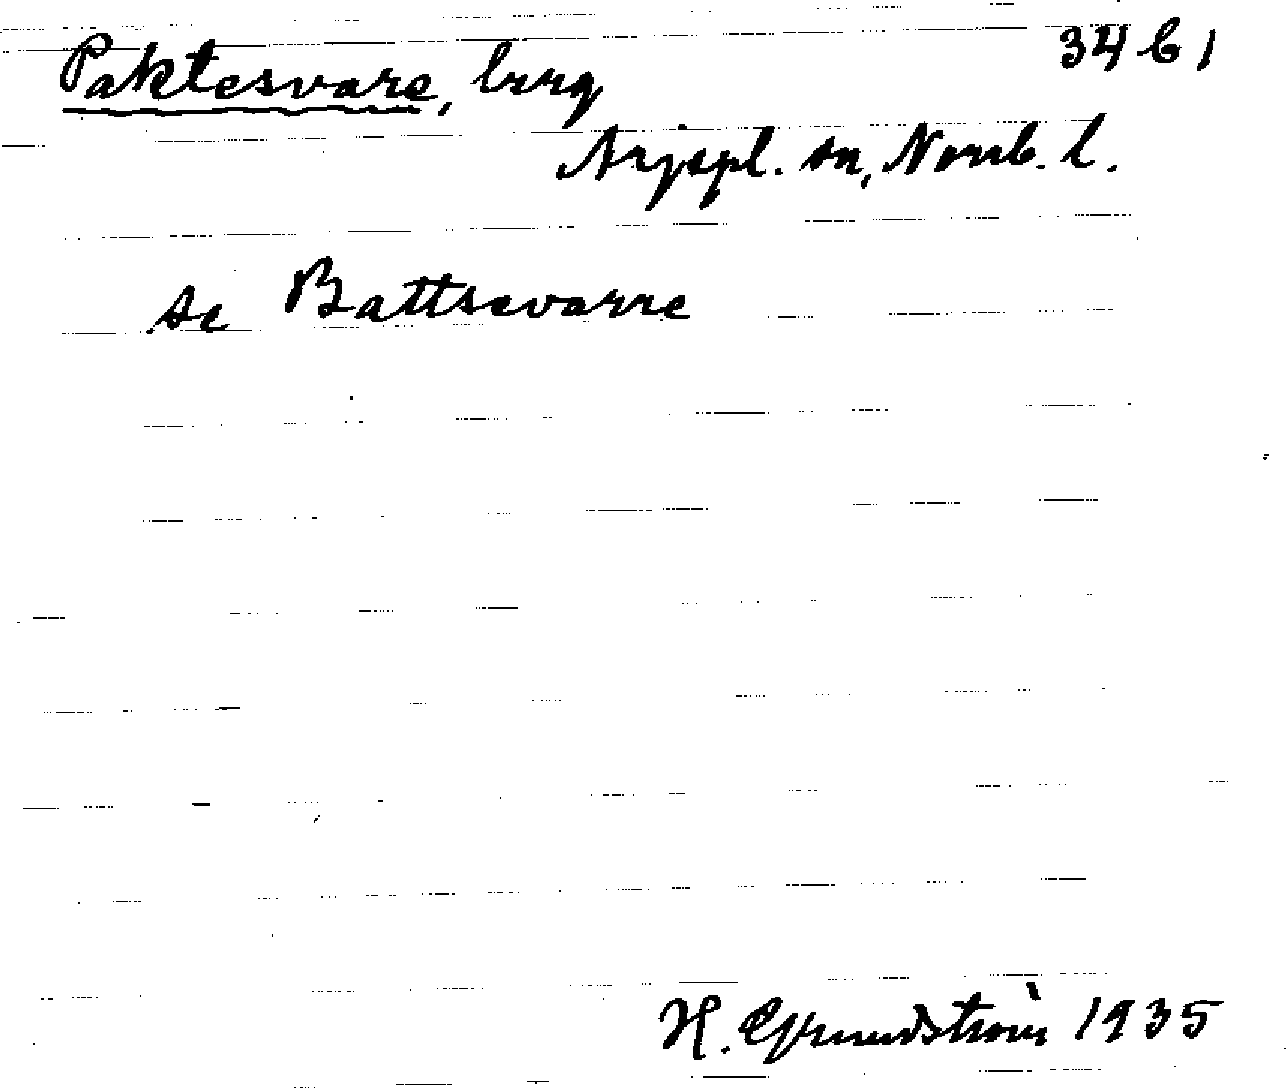 Paktesvare, berg 34 b 1
Arjepl. sn, Norrb. l.
se Battsevarre
H. Grundström 1935